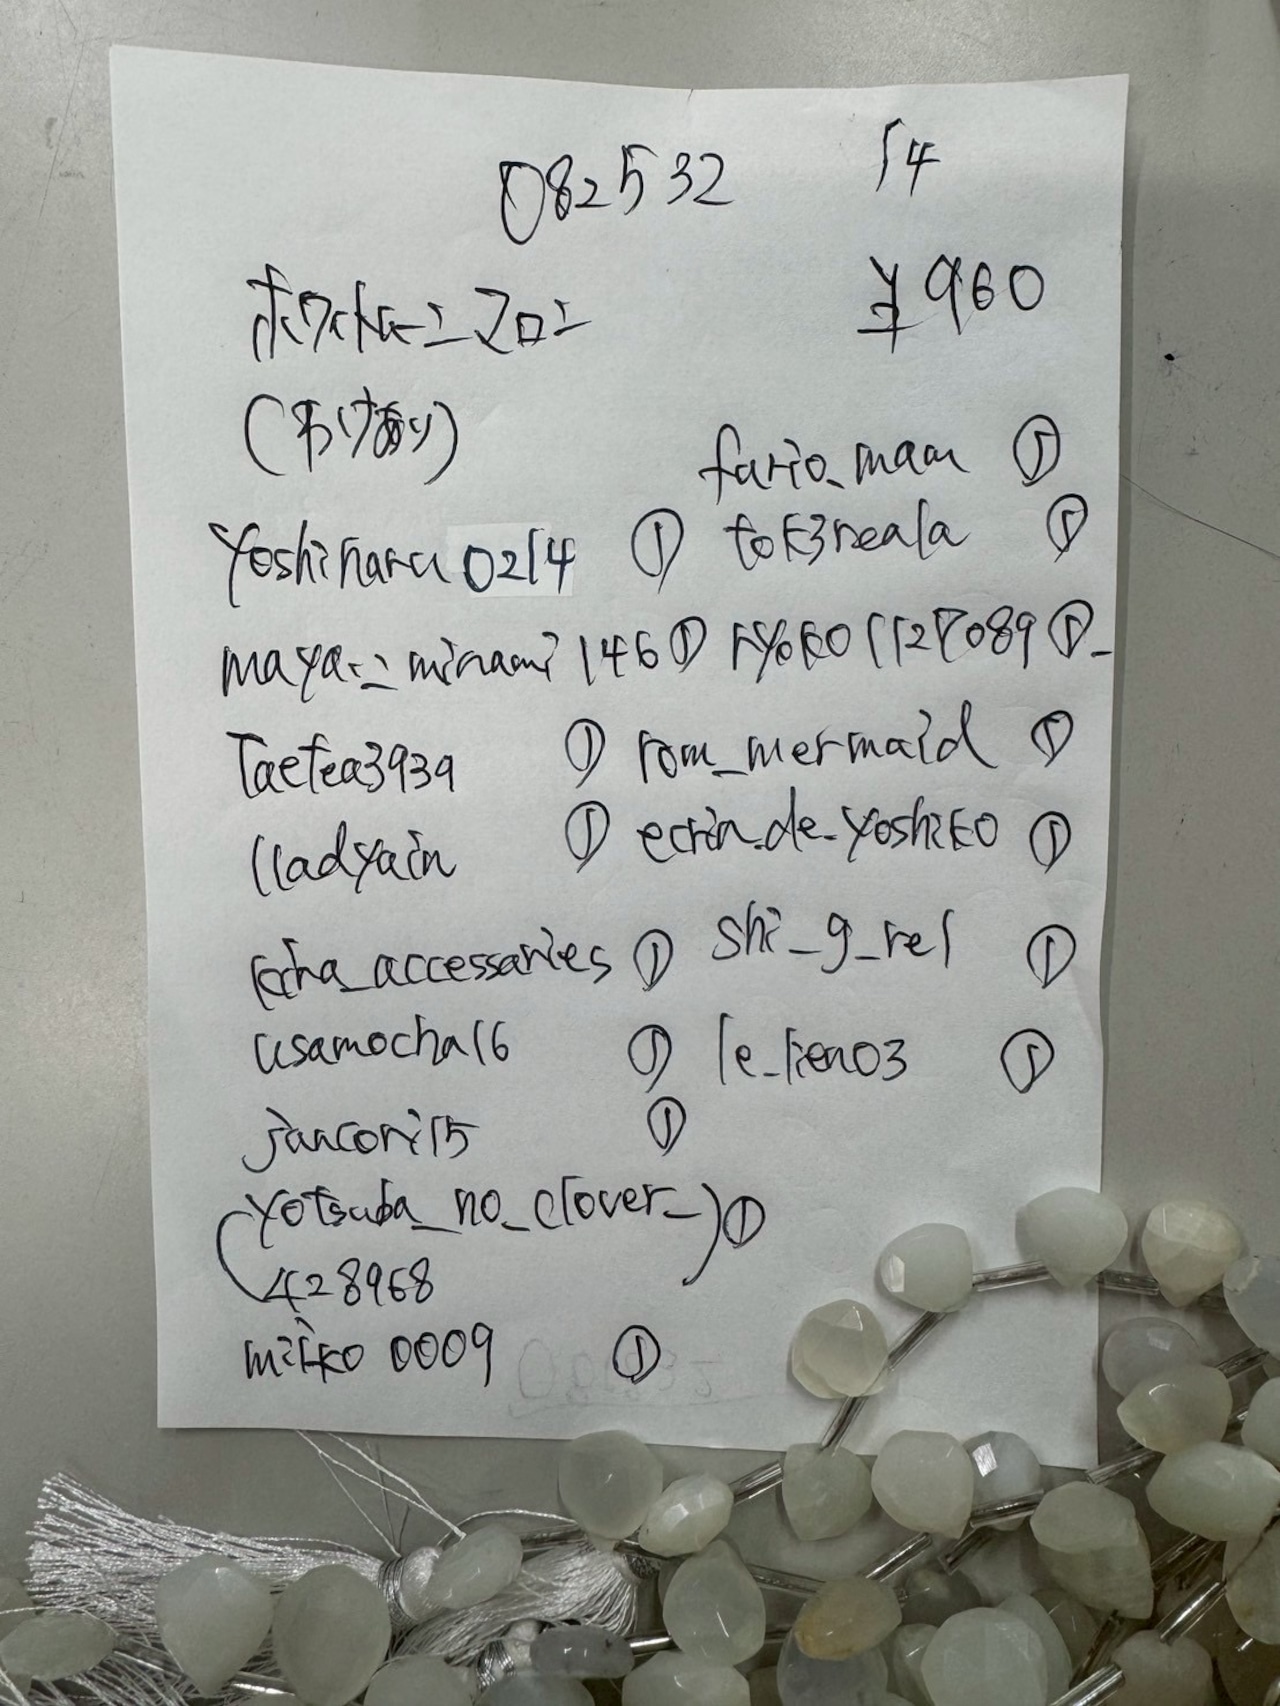 082532 14
ホワイトムーンマロン ¥960
(わけあり)
fario_mam ①
yoshiharu0214 ① tok3neala ①
maya.:.minami146① ryoko1127089①_
Taetea3939 ① rom_mermaid ①
lladyain ① ecrin.de_yoshiko ①
kiha_accessaries ① shi_g_rel ①
usamocha16 ① le_lien03 ①
jancori15 ①
(yotsuba_no_clover_)①
428968
miiko0009 ①